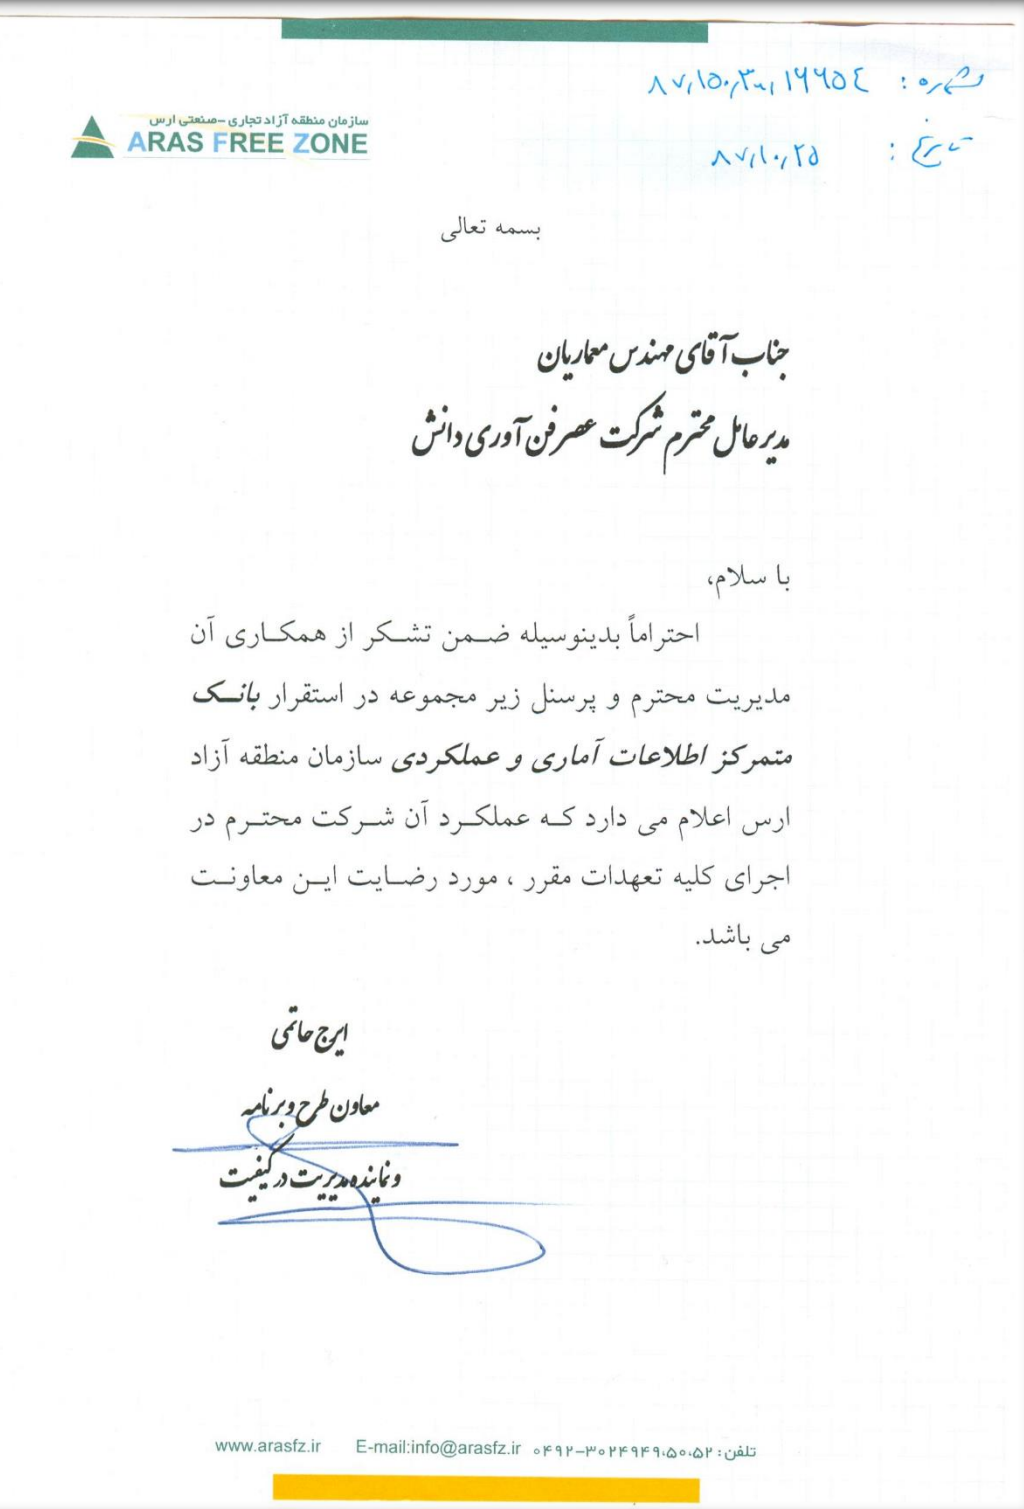 شماره :
تاریخ : ۸۷,۱۰,۲۵
سازمان منطقه آزاد تجاری -صنعتی ارس
ARAS FREE ZONE
بسمه تعالی
جناب آقای مهندس معماریان
مدیر عامل محترم شرکت عصر فن آوری دانش
با سلام،
احتراماً بدینوسیله ضمن تشکر از همکاری آن
مدیریت محترم و پرسنل زیر مجموعه در استقرار بانک
متمرکز اطلاعات آماری و عملکردی سازمان منطقه آزاد
ارس اعلام می دارد که عملکرد آن شرکت محترم در
اجرای کلیه تعهدات مقرر ، مورد رضایت این معاونت
می باشد.
ایرج حاتمی
معاون طرح و برنامه
و نماینده مدیریت در کیفیت
www.arasfz.ir E-mail:info@arasfz.ir تلفن: ۰۴۹۲-۳۰۲۴۹۴۹،۵۰،۵۲